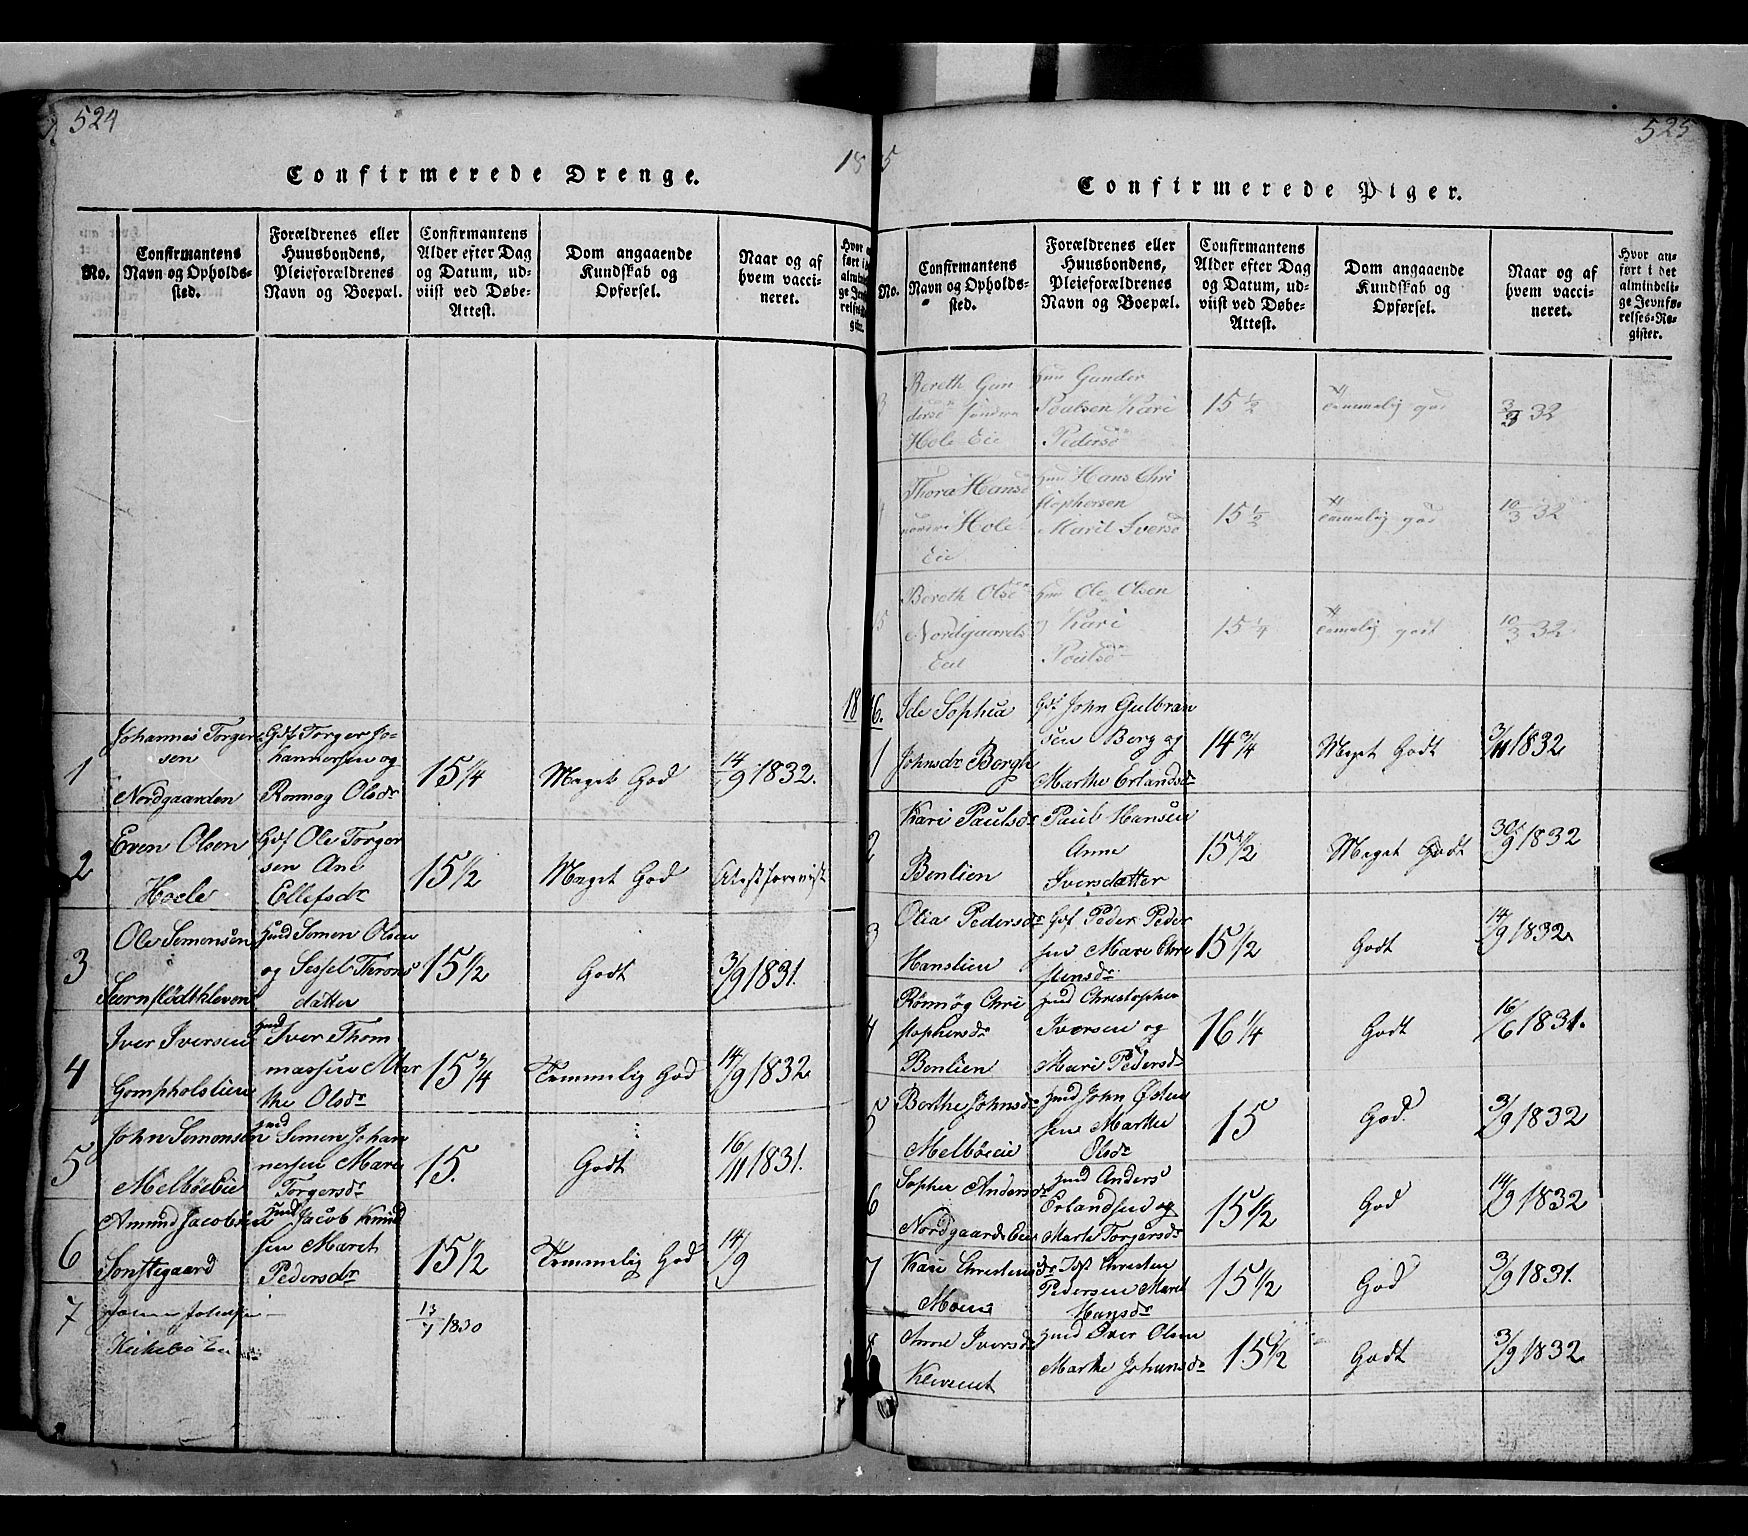 524
Confirmerede Drenge.
No.
Confirmantens
Navn og Opholds-
sted.
Forældrenes eller
Huusbondens,
Pleieforældrenes
Navn og Boepæl.
Confirmantens
Alder efter Dag
og Datum, ud-
viist ved Døbe-
Attest.
Dom angaaende
Kundskab og
Opførsel.
Naar og af
hvem vacci-
neret.
1
Johannes Torger
sen
Nordgaarden
Gdf Torger Jo-
hannersen og
Ronnog Olsdr
15 1/4
Meget God
14/9 1832.
2
Even Olsen
Hoele
Gdf Ole Torger
sen Ane
Ellefsdr
15 1/2
Meget God
3
Ole Semonsen
Hmd Semon Olsen
og Sessel Throns
datter
15 1/2
Godt
3/9 1831.
4
Iver Iversen
Gompholslien
Hmd
Iver Thom
massen Mar
the Olsdr
15 3/4
Temmelig God
14/9 1832.
5
John Semonsen
Melböeie
Hmd
Semon Johan
nersen Mari
Torgersdr
15.
Godt
16/11 1831.
6
Amund Jacobsen
Sonstegaard
Hmd Jacob Knud
sen Maret
Pedersdr
15 1/2
Temmelig God
14/9
7
13/7 1830
18 5
525
Confirmerede Piger.
No.
Confirmantens
Navn og Opholds-
sted.
Forældrenes eller
Huusbondens,
Pleieforældrenes
Navn og Boepæl.
Confirmantens
Alder efter Dag
og Datum, ud-
viist ved Døbe-
Attest.
Dom angaaende
Kundskab og
Opførsel.
Naar og af
hvem vacci-
neret.
Hvor an-
ført i det
almindeli-
ge Jevnfø-
relses-Re-
gister.
3
Bereth Gun
Hole Eie
Hmd Gunder
Poulsen Kari
Peders
15 1/2
temmelig god
3/9 32
Thora Hans
Hole
Eie
Hmd Hans Chri
stophersen
Marit Ivers
15 1/2
temmelig god
10/3 32
5
Bereth Ols
Nordgaards
Eie
Hmd Ole Olsen
og Kari
Pouls
15 1/4
temmelig godt
10/3 32
18 36.
1
Ide Sophia
Johnsdr Bergh
Gdf John Gulbran
sen Berg og
Marthe Erlandsdr
14 3/4
Meget Godt
3/11 1832
2
Kari Paulsdr
Benlien
Paul Hansen
Anne
Iversdatter
15 1/2
Meget Godt
30/9 1832
3
Olia Pedersdr
Hanslien
Gdf Peder Peder
sen Mari Chri
stensdr
15 1/2
Godt
14/9 1832.
4
Rönnög Chri
stophersdr
Benlien
Hmd Christopher
Iversen og
Mari Pedersdr
16 1/4
Godt
16/6 1831.
5
Berthe Johnsdr
Melböeie
Hmd John Østen
sen Marthe
Olsdr
15
God.
3/9 1832
6
Sophie Andersdr
Nordgaards Eie
Hmd Anders
Erlandsen og
Marte Torgersdr
15 1/2
God
14/9 1832
7
Kari Christensdr
Moen
Christen
Pedersen Maret
Hansdr
15 1/2
God
3/9 1831.
8
Anne Iversdr
Klevenet
Hmd Iver Olsen
Marthe Johansdr
15 1/2
Godt
3/9 1832.